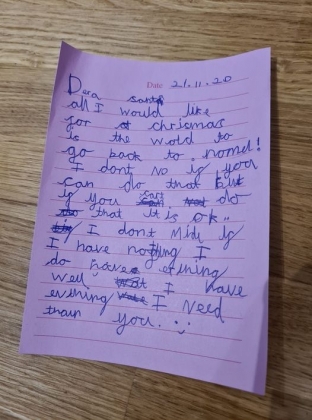 Date 21.11.20
Dera santa
all I would like
for chrismas
is the wold to
go back to nomel!
I dont no if you
can do that but
if you cant do
that it is ok..
I dont Mide if
I have nothing I
do have evining
well I have
evthing I Need
than you...